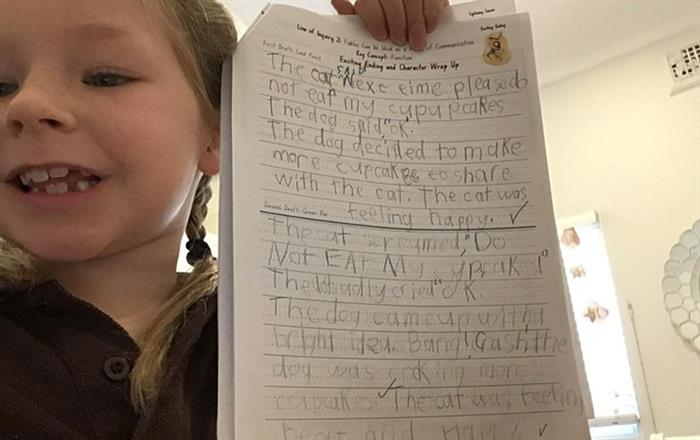 Tightening Tension
Exciting Ending
Line of Inquiry 2: Fables Can be Used as a of Communication
Key Concept: Function
First Draft: Lead Pencil
Exciting Ending and Character Wrap Up
The cat said "Next time please do
not eat my cupupcakes
The dog said, "ok".
The dog decided to make
more cupcakes to share
with the cat. The cat was
feeling happy. ✓
Second Draft: Green Pen
The cat screamed, "Do
Not EAt My cupcakes!"
The dog sadly cried "OK.
The dog came up with a
bright idea. Bang! Gash the
dog was cooking more
cupcakes. The cat was feeling
and Happy. ✓